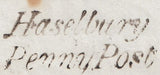 Haselbury
Penny Post